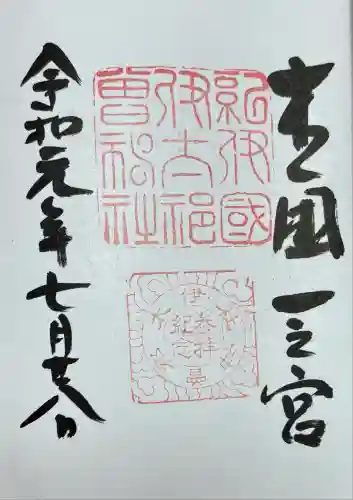 国一之宮
紀伊國
伊太祁
曽神社
伊
参拝
紀念
令和元年七月廿八日